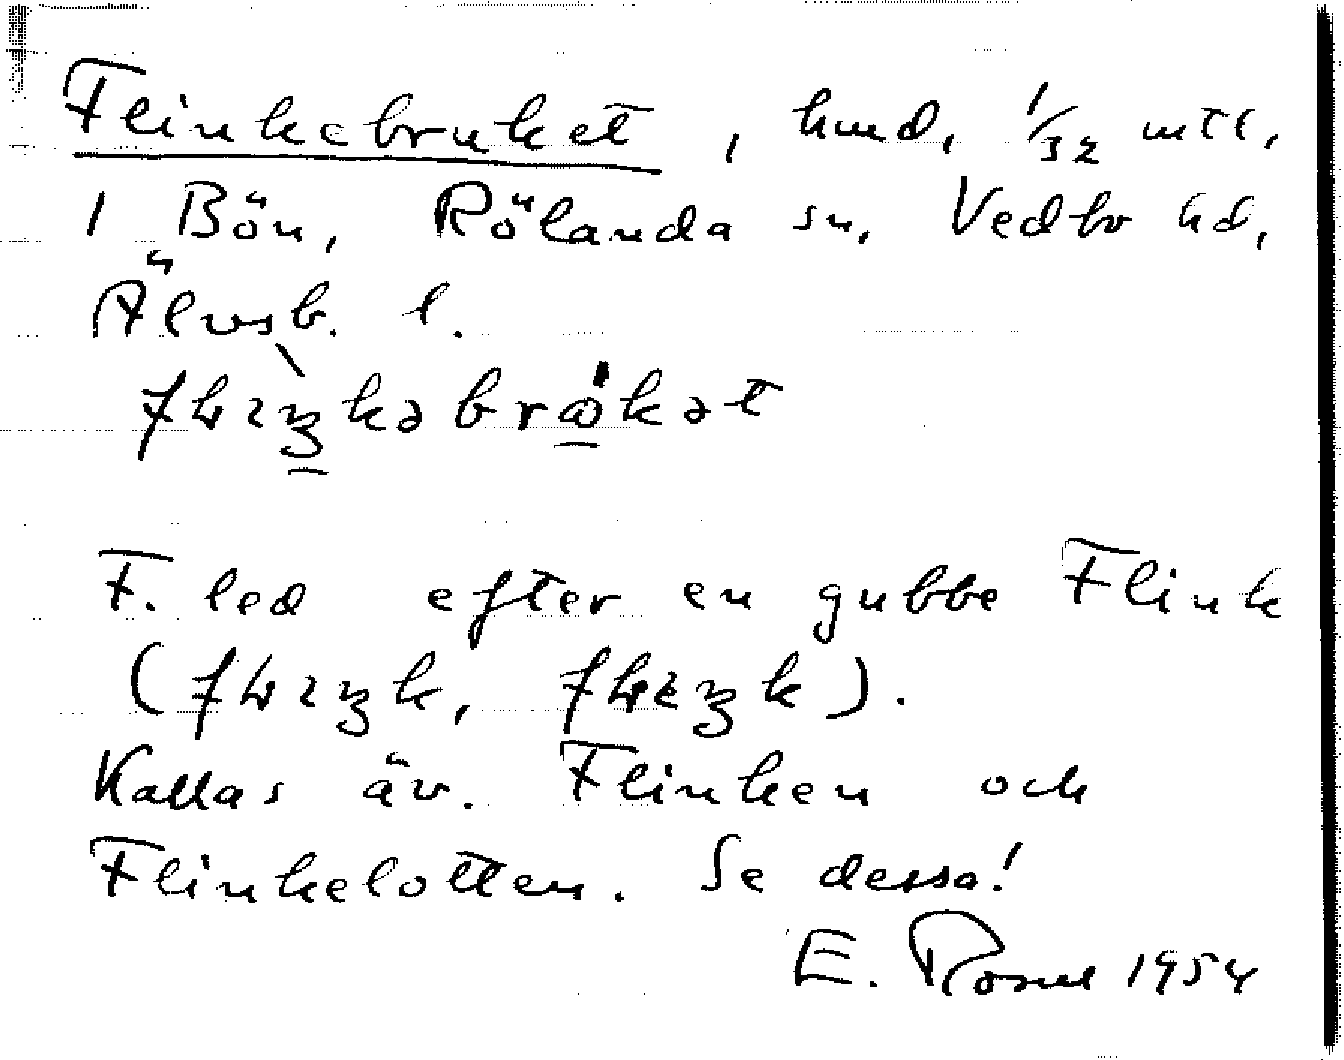 Flinkebruket, hmd, 1/32 mtl,
i Bön, Rölanda sn, Vedbo hd,
Älvsb. l.
F. led efter en gubbe Flink
Kallas äv. Flinken och
Flinkelotten. Se dessa!
E. 1954